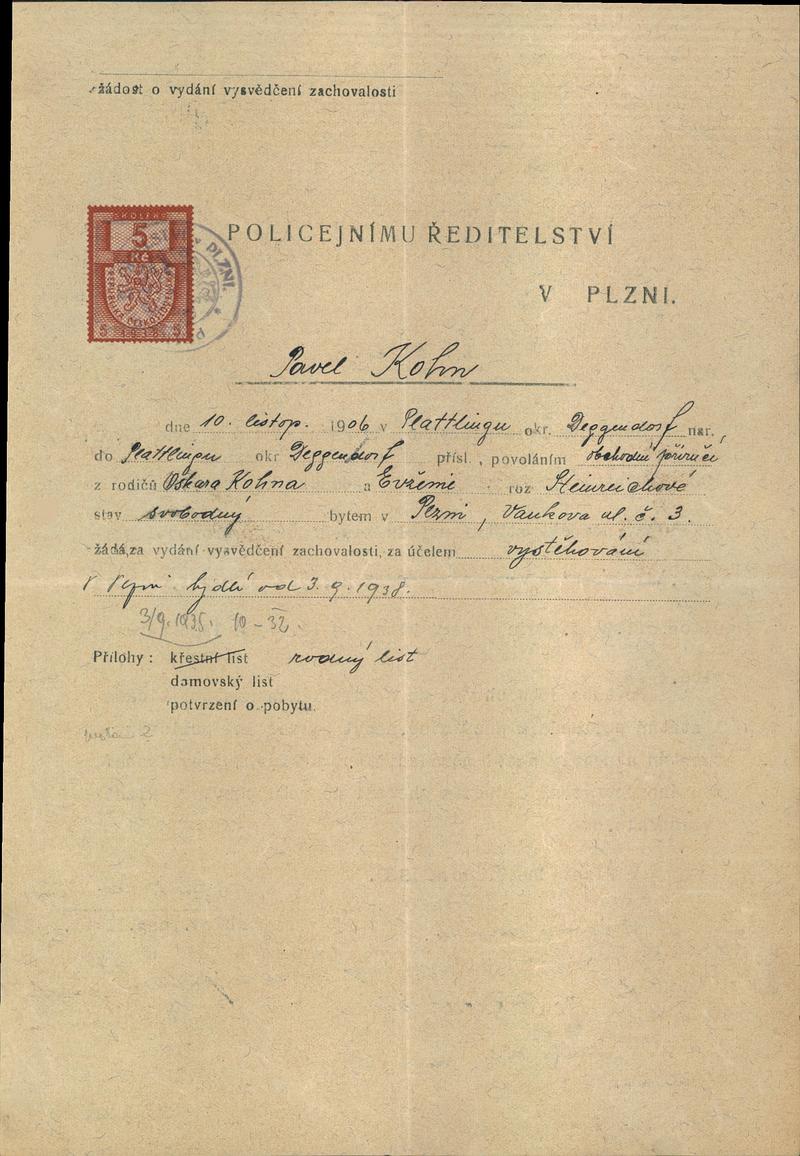 žádost o vydání vysvědčení zachovalosti
KOLEK
5
Kč
POLICEJNÍMU ŘEDITELSTVÍ
PLZNI.
V PLZNI.
Pavel Kohn
dne 10. listop. 1906 v Plattlingu okr. Deggendorf nar.,
do Plattlingu okr Deggendorf přísl., povoláním obchodní příručí
z rodičů Oskara Kohna a Evženie roz Steinreichové
stav svobodný bytem v Plzni, Vaňkova ul. č. 3.
žádá, za vydání vysvědčení zachovalosti, za účelem vystěhování
V Plzni bydlí od 3. 9. 1938.
3/9. 1938. 10-32.
Přílohy: křestní list rodný list
domovský list
potvrzení o pobytu.